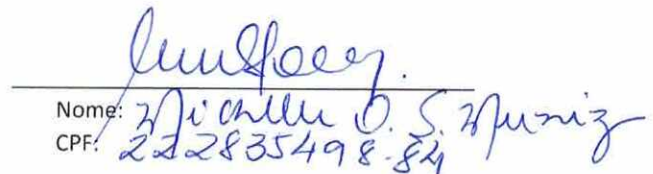 Nome: Michelle D. S. Muniz
CPF: 222835498-84